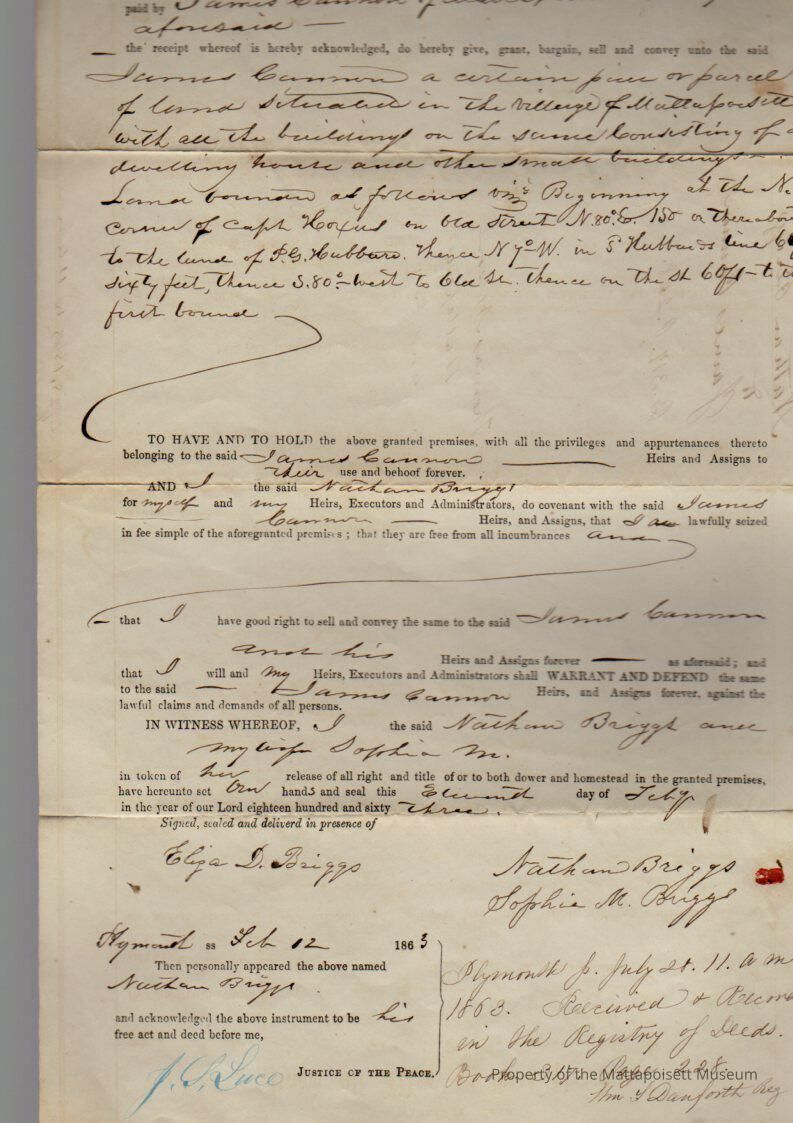 paid by James Cannon of
aforesaid —
the receipt whereof is hereby acknowledged, do hereby give, grant, bargain, sell and convey unto the said
James Cannon a certain piece or parcel
of land situated in the village of Mattapoisett
with all the buildings on the same Consisting of a
dwelling house and other small buildings —
Land bounded as follows viz Beginning at the N.
corner of Capt Hoxies on Old Street N. 80° E. 150 or thereabou
to the land of P. G. Hubbard. thence N 7° W. in S Hubbards line 6
sixty feet, thence S. 80° – West to Old St. thence on the St 60 ft – to t
first bound
TO HAVE AND TO HOLD the above granted premises, with all the privileges and appurtenances thereto
belonging to the said James Cannon — Heirs and Assigns to
their use and behoof forever.
AND I the said Nathan Briggs
for myself and my Heirs, Executors and Administrators, do covenant with the said James
Cannon — Heirs, and Assigns, that I am lawfully seized
in fee simple of the aforegranted premises ; that they are free from all incumbrances and
— that I have good right to sell and convey the same to the said James Cannon
and his Heirs and Assigns forever — as aforesaid ; and
that I will and my Heirs, Executors and Administrators shall WARRANT AND DEFEND the same
to the said — James Cannon Heirs, and Assigns forever, against the
lawful claims and demands of all persons.
IN WITNESS WHEREOF, I the said Nathan Briggs and
my wife Sophia M.
in token of her release of all right and title of or to both dower and homestead in the granted premises,
have hereunto set our hands and seal this Eleventh day of Feby
in the year of our Lord eighteen hundred and sixty three.
Signed, sealed and deliverd in presence of
Eliza D. Briggs
Nathan Briggs
Sophia M. Briggs
Plymouth ss Feb 12 1863
Then personally appeared the above named
Nathan Briggs
and acknowledged the above instrument to be his
free act and deed before me,
J. S. Luce JUSTICE OF THE PEACE.
Plymouth ss. July 28. 11. a m
1863. Received & Recor
in the Registry of Deeds.
Book Page 228.
Wm S Danforth Reg
Property of the Mattapoisett Museum